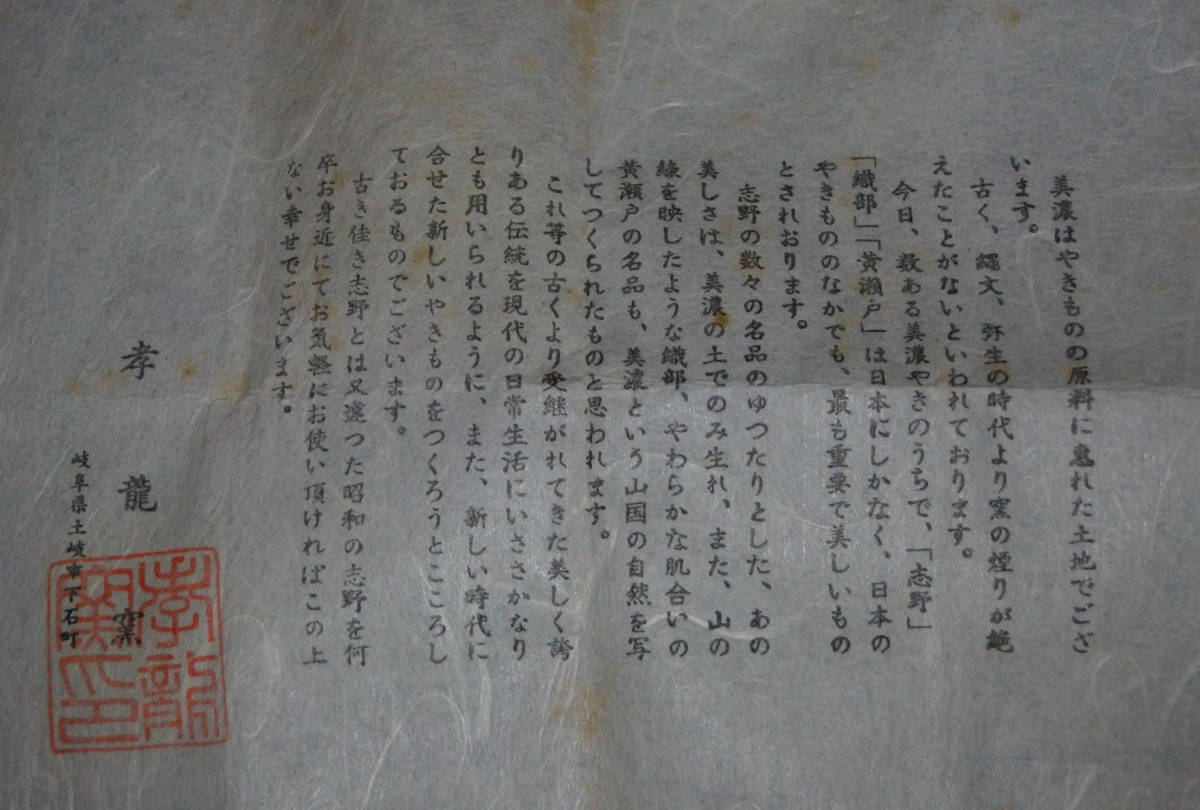 美濃はやきものの原料に恵れた土地でござ
います。
古く、縄文、弥生の時代より窯の煙りが絶
えたことがないといわれております。
今日、数ある美濃やきのうちで、「志野」
「織部」「黄瀬戸」は日本にしかなく、日本の
やきもののなかでも、最も重要で美しいもの
とされおります。
志野の数々の名品のゆつたりとした、あの
美しさは、美濃の土でのみ生れ、また、山の
緑を映したような織部、やわらかな肌合いの
黄瀬戸の名品も、美濃という山国の自然を写
してつくられたものと思われます。
これ等の古くより受継がれてきた美しく誇
りある伝統を現代の日常生活にいささかなり
とも用いられるように、また、新しい時代に
合せた新しいやきものをつくろうとこころし
ておるものでございます。
古き佳き志野とは又違つた昭和の志野を何
卒お身近にてお気軽にお使い頂ければこの上
ない幸せでございます。
孝龍窯
岐阜県土岐市下石町
孝龍
窯印